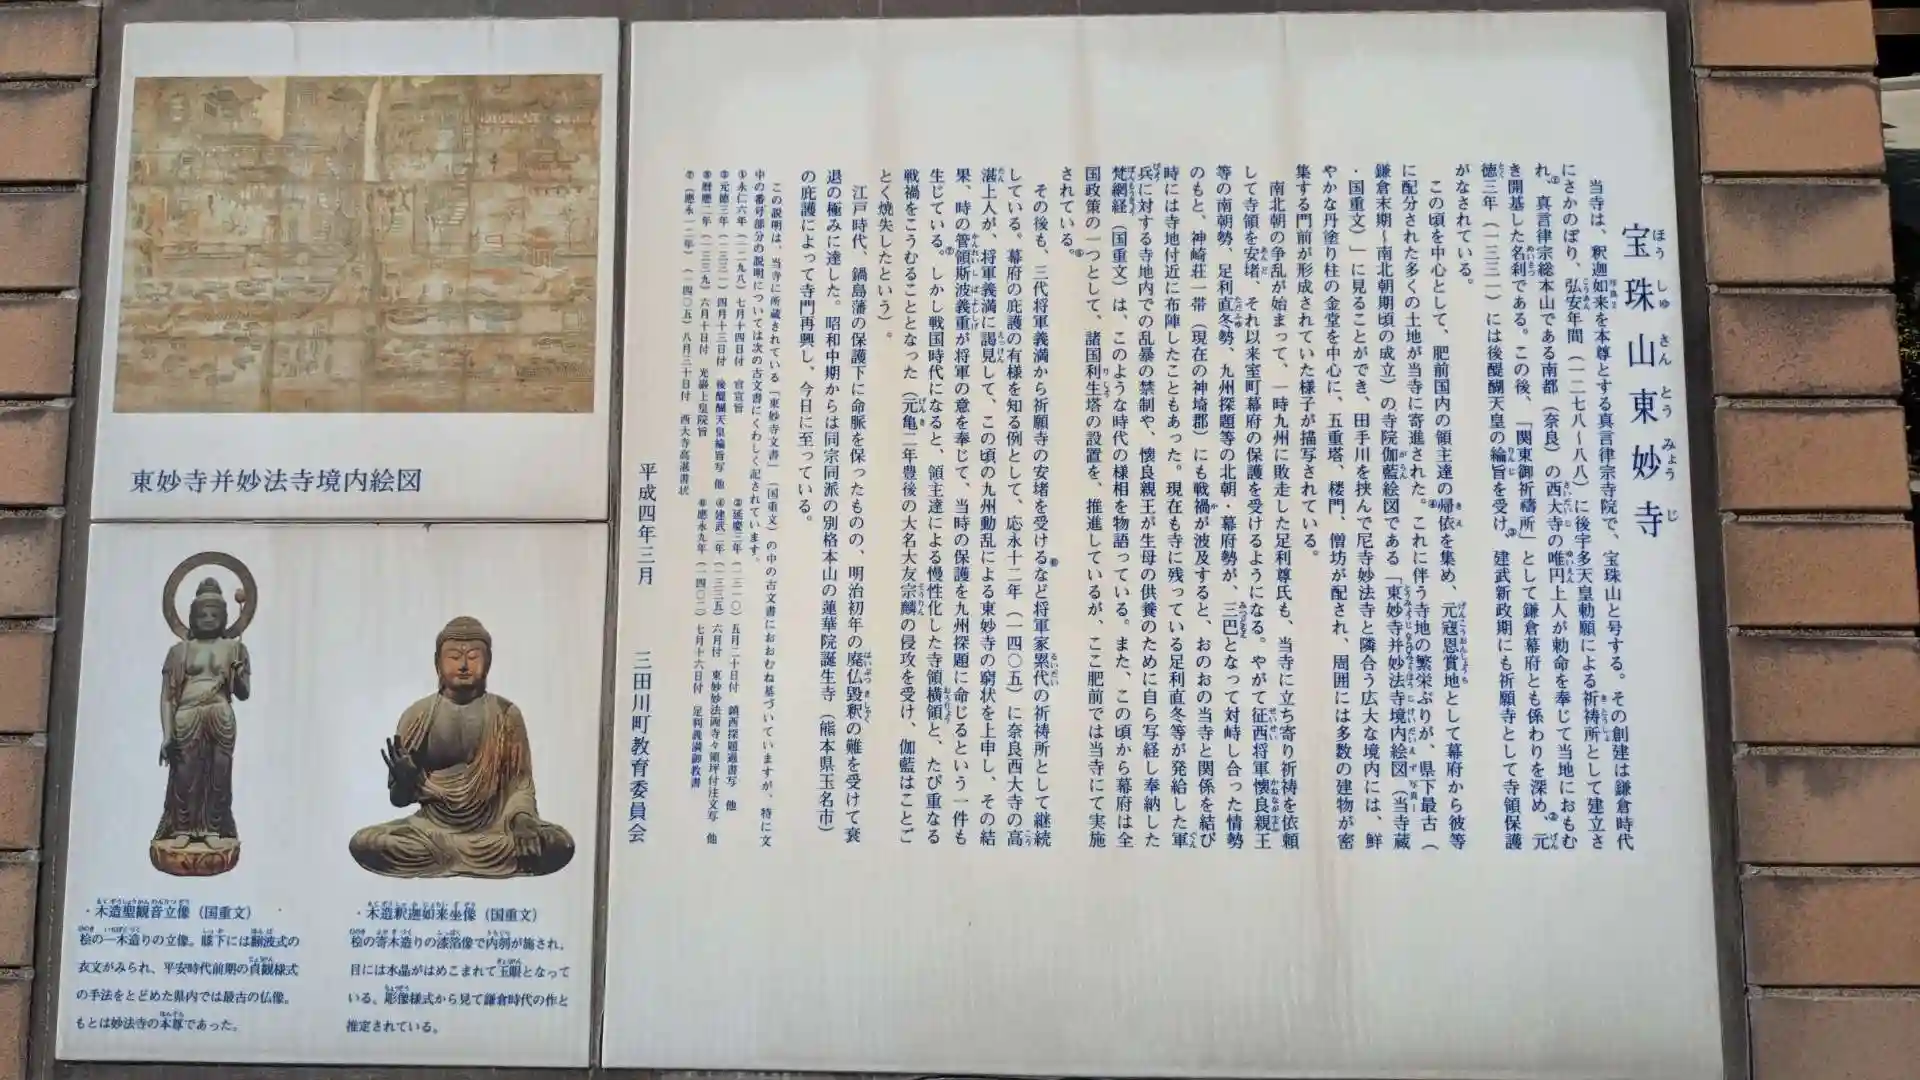 宝珠山東妙寺
当寺は、釈迦如来を本尊とする真言律宗寺院で、宝珠山と号する。その創建は鎌倉時代
にさかのぼり、弘安年間(一二七八〜八八)に後宇多天皇勅願による祈祷所として建立さ
れ、①真言律宗総本山である南都(奈良)の西大寺の唯円上人が勅命を奉じて当地におもむ
き開基した名刹である。この後、「関東御祈禱所」として鎌倉幕府とも係わりを深め、②元
徳三年(一三三一)には後醍醐天皇の綸旨を受け、③建武新政期にも祈願寺として寺領保護
がなされている。
この頃を中心として、肥前国内の領主達の帰依を集め、元寇恩賞地として幕府から彼等
に配分された多くの土地が当寺に寄進された。④これに伴う寺地の繁栄ぶりが、県下最古(
鎌倉末期〜南北朝期頃の成立)の寺院伽藍絵図である「東妙寺并妙法寺境内絵図(当寺蔵
・国重文)」に見ることができ、田手川を挟んで尼寺妙法寺と隣合う広大な境内には、鮮
やかな丹塗り柱の金堂を中心に、五重塔、楼門、僧坊が配され、周囲には多数の建物が密
集する門前が形成されていた様子が描写されている。
南北朝の争乱が始まって、一時九州に敗走した足利尊氏も、当寺に立ち寄り祈祷を依頼
して寺領を安堵、それ以来室町幕府の保護を受けるようになる。やがて征西将軍懐良親王
等の南朝勢、足利直冬勢、九州探題等の北朝・幕府勢が、三巴となって対峙し合った情勢
のもと、神崎荘一帯(現在の神埼郡)にも戦禍が波及すると、おのおの当寺と関係を結び
時には寺地付近に布陣したこともあった。現在も寺に残っている足利直冬等が発給した軍
兵に対する寺地内での乱暴の禁制や、懐良親王が生母の供養のために自ら写経し奉納した
梵網経(国重文)は、このような時代の様相を物語っている。また、この頃から幕府は全
国政策の一つとして、諸国利生塔の設置を、推進しているが、ここ肥前では当寺にて実施
されている。
その後も、三代将軍義満から祈願寺の安堵を受けるなど将軍家累代の祈祷所として継続
している。幕府の庇護の有様を知る例として、応永十二年(一四〇五)に奈良西大寺の高
湛上人が、将軍義満に謁見して、この頃の九州動乱による東妙寺の窮状を上申し、その結
果、時の管領斯波義重が将軍の意を奉じて、当時の保護を九州探題に命じるという一件も
生じている。⑦しかし戦国時代になると、領主達による慢性化した寺領横領と、たび重なる
戦禍をこうむることとなった(元亀二年豊後の大名大友宗麟の侵攻を受け、伽藍はことご
とく焼失したという)。
江戸時代、鍋島藩の保護下に命脈を保ったものの、明治初年の廃仏毀釈の難を受けて衰
退の極みに達した。昭和中期からは同宗同派の別格本山の蓮華院誕生寺(熊本県玉名市)
の庇護によって寺門再興し、今日に至っている。
この説明は、当寺に所蔵されている「東妙寺文書」(国重文)の中の古文書におおむね基づいていますが、特に文
中の番号部分の説明については次の古文書にくわしく記されています。
①永仁六年(一二九八)七月十四日付 官宣旨 ②延慶三年(一三一〇)五月二十日付 鎮西探題過書写 他
③元徳三年(一三三一)四月十三日付 後醍醐天皇綸旨写 他 ④建武二年(一三三五)六月付 東妙妙法両寺々領坪付注文写 他
⑤暦應二年(一三三九)六月十日付 光嚴上皇院旨 ⑥應永九年(一四〇二)七月十六日付 足利義満御教書
⑦(應永一二年)(一四〇五)八月三十日付 西大寺高湛書状
平成四年三月 三田川町教育委員会
東妙寺并妙法寺境内絵図
・木造聖観音立像(国重文)
桧の一木造りの立像。膝下には飜波式の
衣文がみられ、平安時代前期の貞観様式
の手法をとどめた県内では最古の仏像。
もとは妙法寺の本尊であった。
・木造釈迦如来坐像(国重文)
桧の寄木造りの漆箔像で内刳が施され、
目には水晶がはめこまれて玉眼となって
いる。彫像様式から見て鎌倉時代の作と
推定されている。